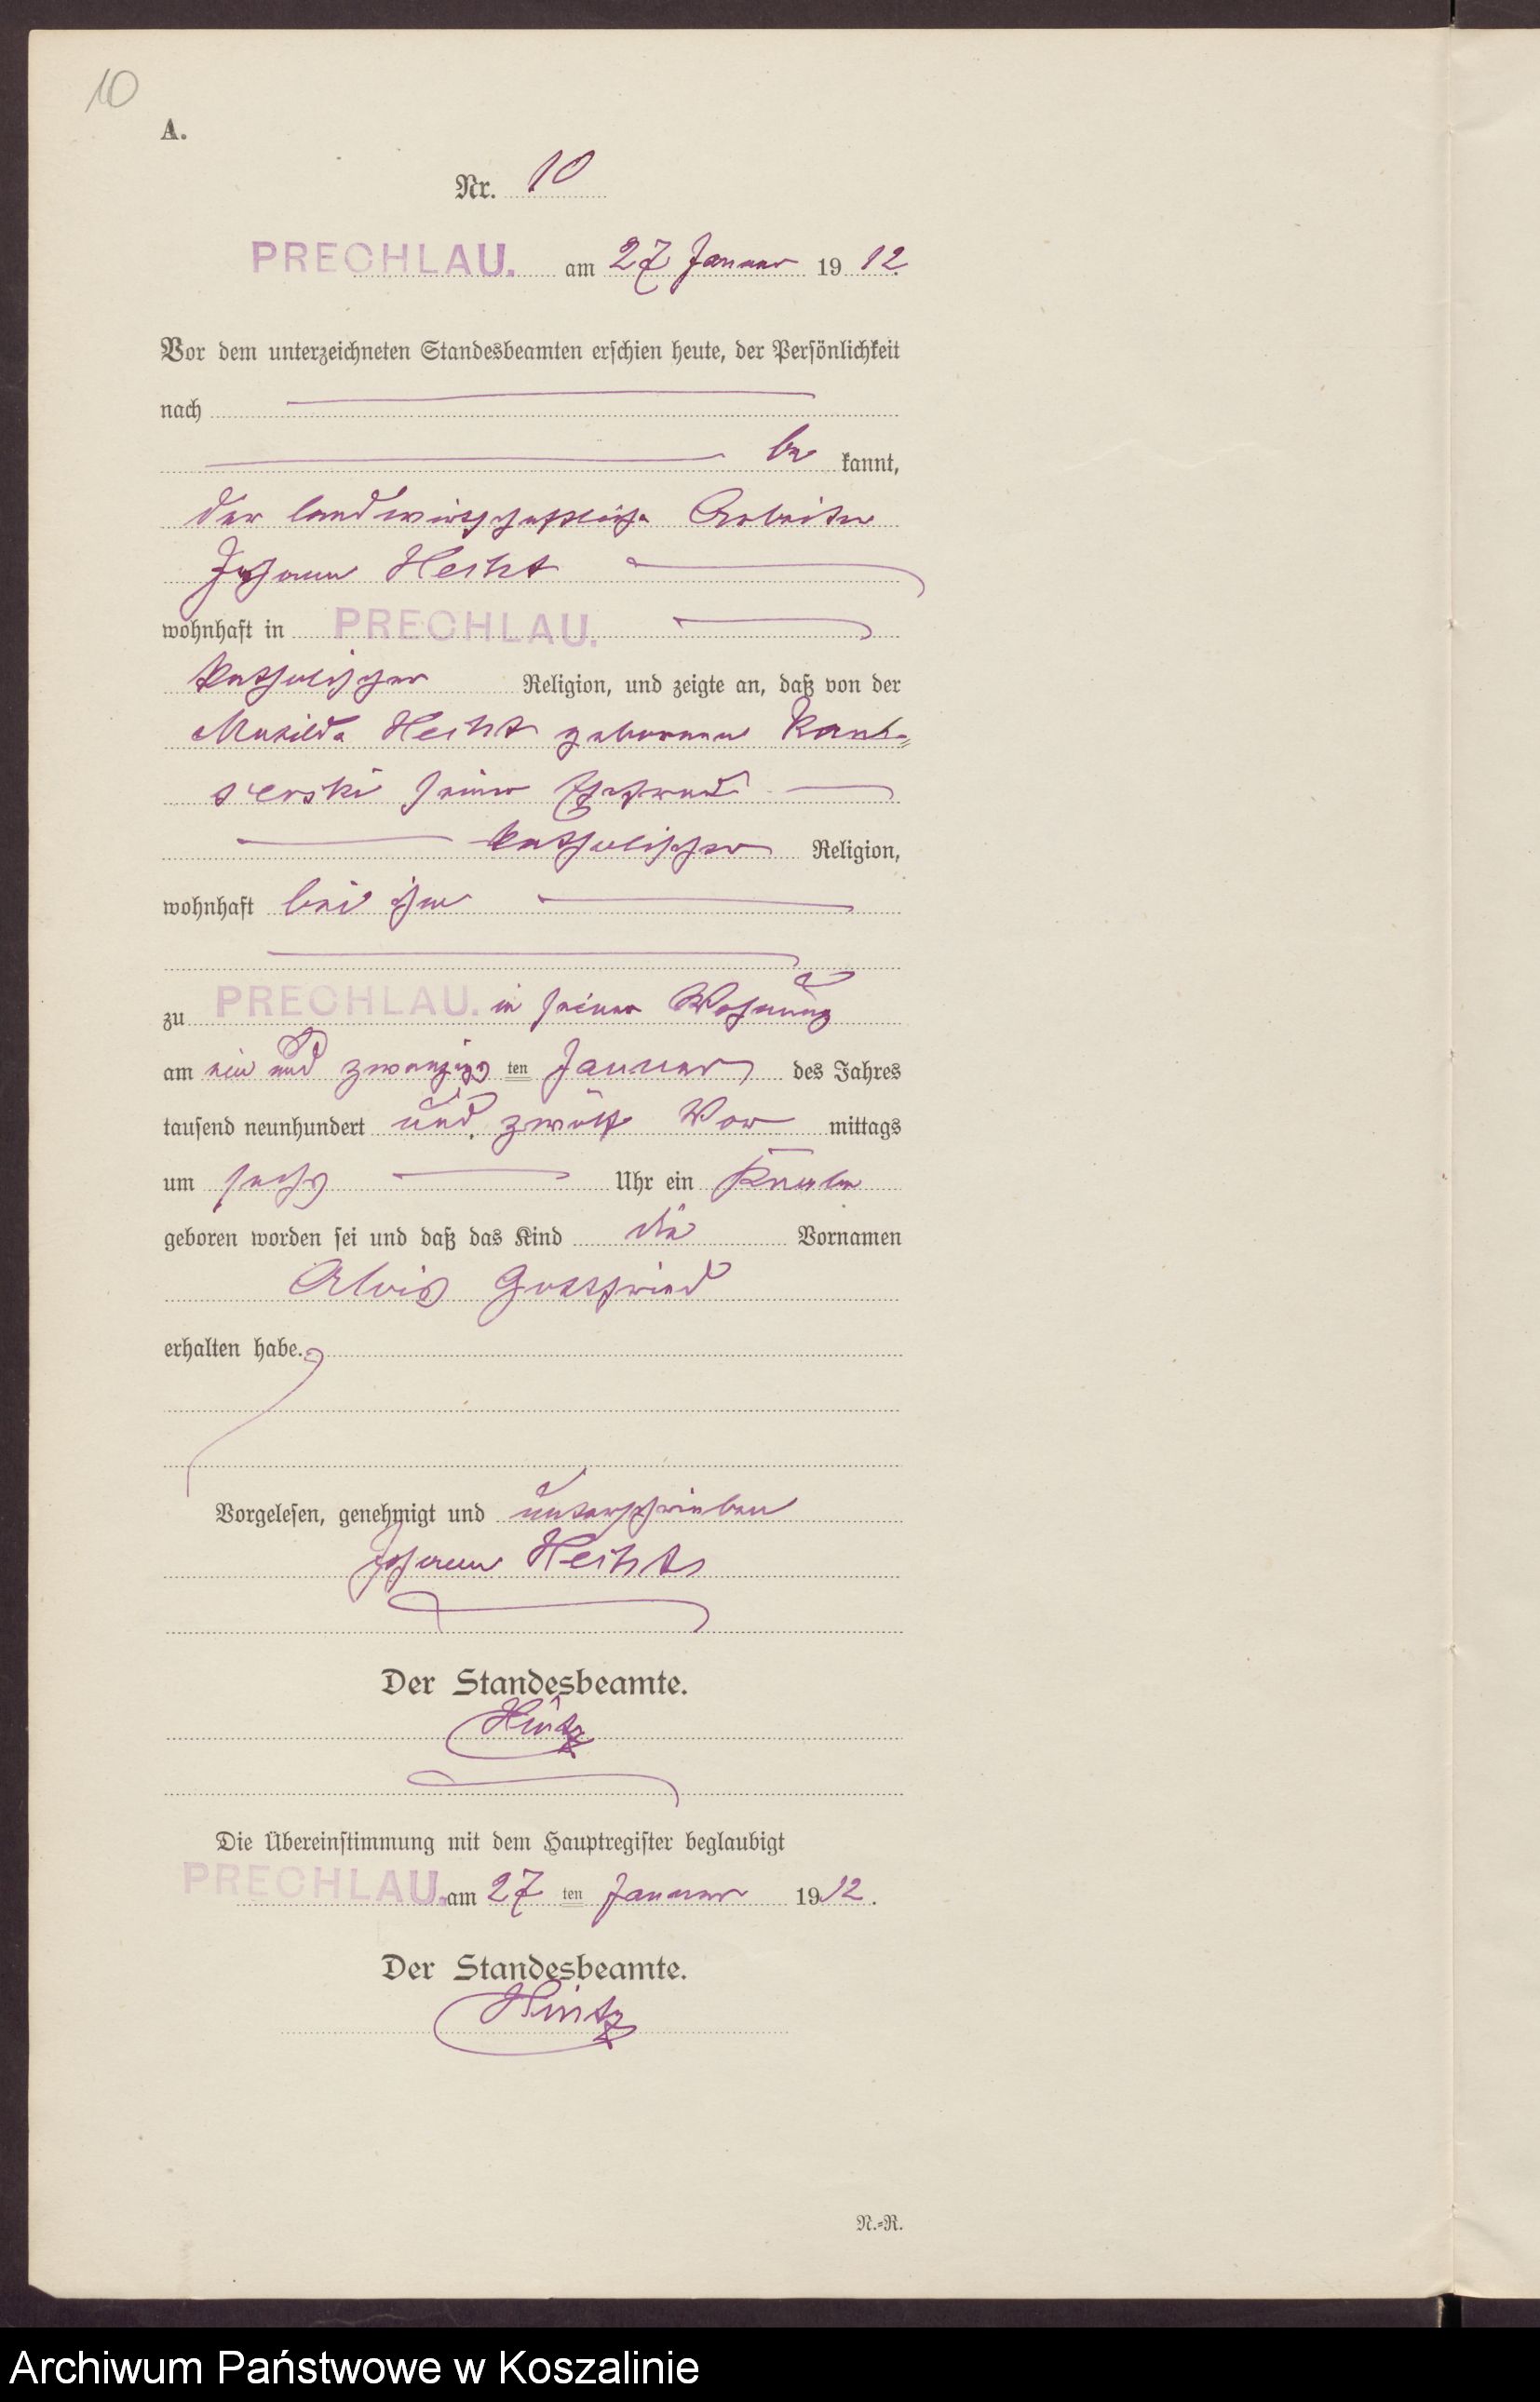 10
A.
Nr. 10
PRECHLAU. am 27 Januar 1912.
Vor dem unterzeichneten Standesbeamten erschien heute, der Persönlichkeit
nach
be kannt,
der landwirtschaftliche Arbeiter
Johann Hecht
wohnhaft in PRECHLAU.
katholischer Religion, und zeigte an, daß von der
Hecht geborenen
seiner Ehefrau
katholischer Religion,
wohnhaft bei ihm
zu PRECHLAU. in seiner Wohnung
am ein und zwanzigs ten Januar des Jahres
tausend neunhundert und zwölf Vor mittags
um sechs Uhr ein Knabe
geboren worden sei und daß das Kind die Vornamen
Alois Gottfried
erhalten habe.
Vorgelesen, genehmigt und unterschrieben
Johann Hecht
Der Standesbeamte.
Hintz
Die Übereinstimmung mit dem Hauptregister beglaubigt
PRECHLAU. am 27 ten Januar 1912.
Der Standesbeamte.
Hintz
N.=R.
Archiwum Państwowe w Koszalinie